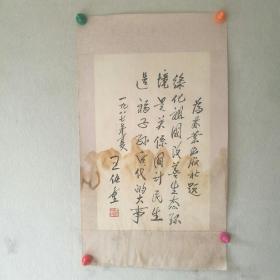 为林业出版社题
绿化祖国改善生态环
境是关系国计民生
造福子孙后代的大事
一九八七年夏